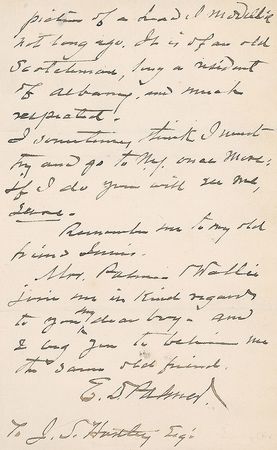 picture of a head I modelled
not long ago. It is of an old
Scotchman, long a resident
of Albany, and much
respected.
I sometimes think I must
try and go to N.Y. once more;
if I do you will see me,
sure.
Remember me to my old
friend Innis.
Mrs. Palmer & Wallie
join me in kind regards
to you, my dear boy - and
I beg you to believe me
the same old friend.
E. D. Palmer.
To J. S. Hartley Esq: